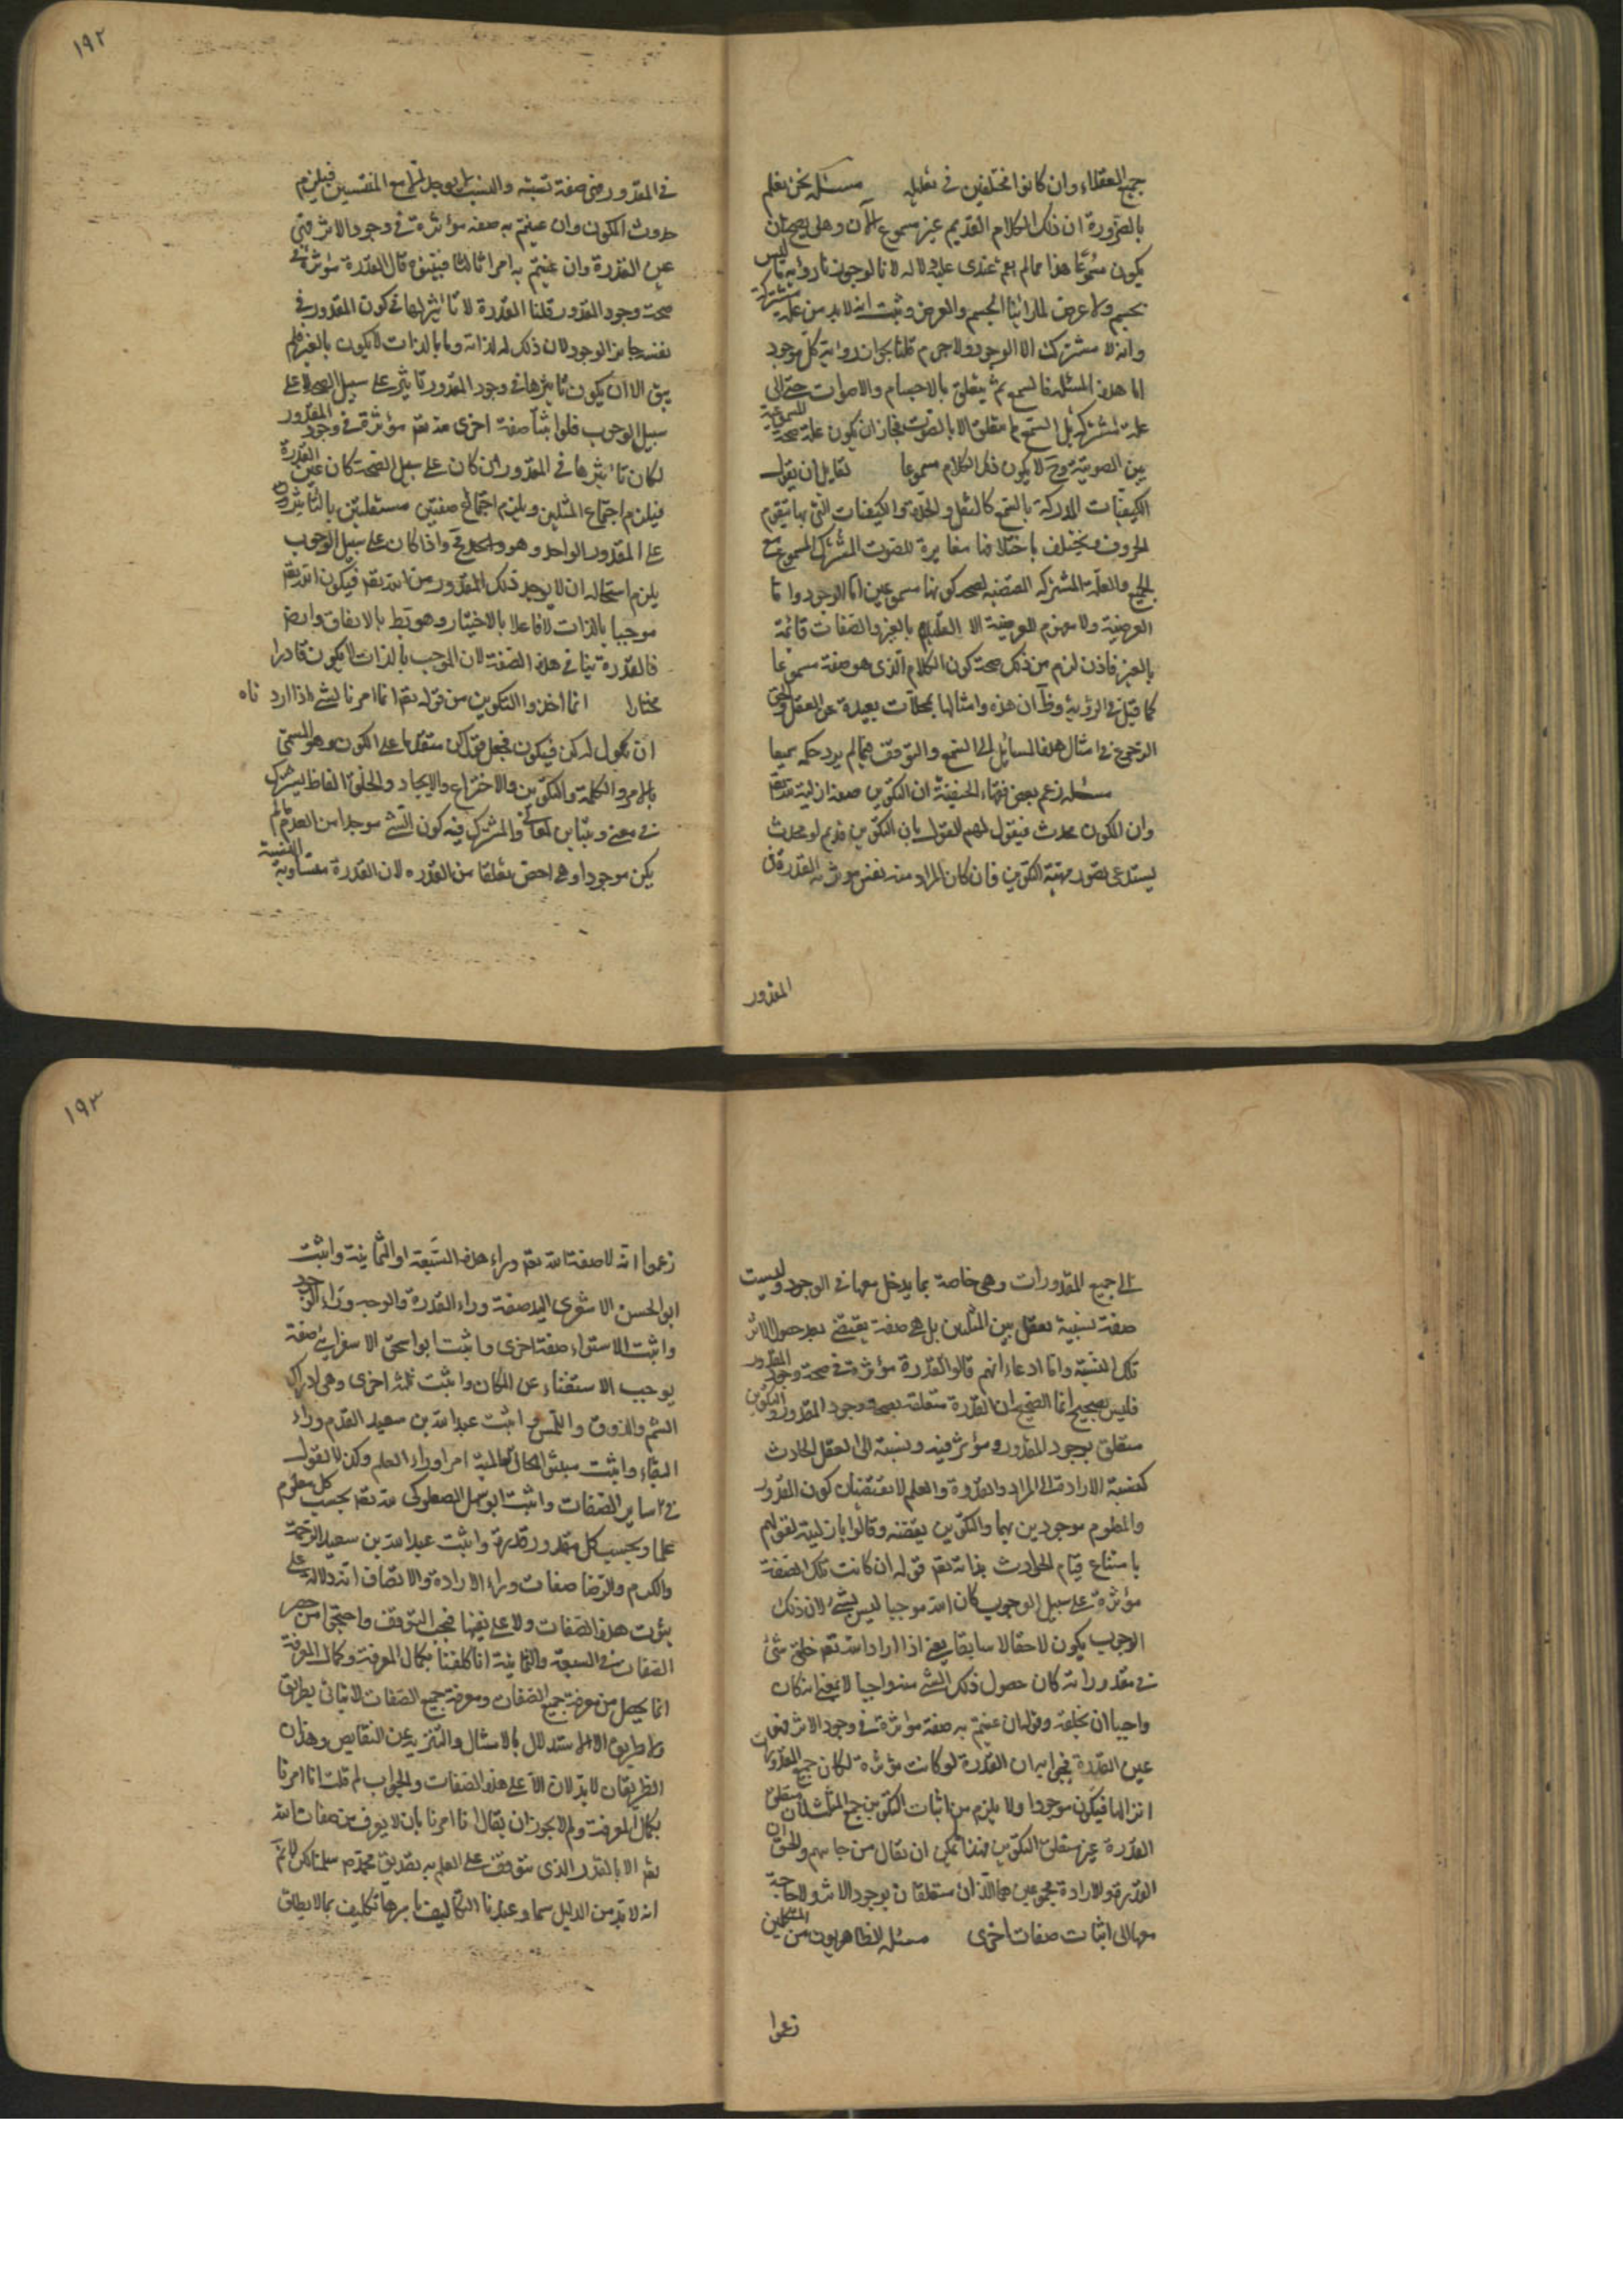 جميع العقلاء وان كانوا مختلفين في تعليله مسئله نحن نعلم
بالضرورة ان ذلك الكلام القديم غير مسموع الآن وهل يصح ان
يكون مسموعا هذا مما لم يقم عندى عليه دلاله لانا لو جوزنا رواية ما ليس
بجسم ولا عرض لما راينا الجسم والعرض وثبت انه لابد من علة مشتركة
وانه لا مشترك الا الوجود ولاجرم قلنا بجواز رواية كل موجود
اما هذه المسئله فالسمع ثم يتعلق بالاجسام والاصوات حتى
علة مشتركة بل السمع لم يتعلق الا بالصوت فجاز ان يكون علة صحة المسموعية
هى الصوتية وح لا يكون ذلك الكلام مسموعا لقايل ان يقول
الكيفيات المدركة بالسمع كالثقل والحدة والكيفيات التى بها تتقوم
الحروف وتختلف باختلافها مغايرة للصوت المشترك المسموع مع
الجميع والعلة المشتركه المقتضيه لصحه كونها مسموعين اما الوجود واما
العرضية ولا مفهوم للعرضية الا القيام بالغير والصفات قائمة
بالغير فاذن لزم من ذلك صحة كون الكلام الذى هو صفة مسموعا
كما قيل فى الرؤية وظ ان هذه وامثالها تمحلات بعيدة عن العقل والحق
الرجوع فى امثال هذه المسايل الى السمع والتوقف فيما لم يرد حكمه سمعا
مسئله زعم بعض فقهاء الحنفية ان التكوين صفة ازلية لله تعم
وان المكون محدث فيقول لهم القول بان التكوين قديم او محدث
يستدعى تصور مهية التكوين فان كان المراد منه نفس موثرية القدرة فى
المقدور
١٩٢
فى المقدور فهى صفة نسبية والنسب لا يوجد الا مع المنتسبين فيلزم
حدوث المكون وان عنيتم به صفه مؤثرة فى وجود الاثر فهى
عين القدرة وان عنيتم به امرا ثالثا فبينوه قال القدرة مؤثرة فى
صحة وجود المقدور قلنا القدرة لا تاثير لها فى كون المقدور فى
نفسه جايز الوجود لان ذلك له لذاته وما بالذات لا يكون بالغير فلم
يبق الا ان يكون تاثيرها فى وجود المقدور تاثير على سبيل الصحة لا على
سبيل الوجوب فلو اثبتنا صفة اخرى لله تعم مؤثرة فى وجود المقدور
لكان تاثيرها فى المقدور ان كان على سبيل الصحة كان عين القدرة
فيلزم اجتماع المثلين ويلزم اجتماع صفتين مستقلتين بالتاثير
على المقدور الواحد وهو مح واذا كان على سبيل الوجوب
يلزم استحاله ان لا يوجد ذلك المقدور من الله تعم فيكون الله تعم
موجبا بالذات لا فاعلا بالاختيار وهو بط بالاتفاق وايض
فالقدرة ينافى هذه الصفة لان الموجب بالذات لا يكون قادرا
مختارا انما اخذوا التكوين من قوله تعم انما امرنا لشىء اذا اردناه
ان نقول له كن فيكون فجعل قول كن متقدما على الكون وهو المسمى
بالامر والكلمة والتكوين والاختراع والايجاد والخلق الفاظ يشترك
فى معنى ويتباين بمعانى والمشترك فيه كون الشىء موجدا من العدم ما لم
يكن موجودا وهى اخص تعلقا من القدره لان القدرة متساوية النسبة
الى جميع المقدورات وهى خاصة بما يدخل منها فى الوجود وليست
صفة نسبية تعقل بين المنتسبين بل هى صفة يقتضى بعد حصول الاثر
تلك النسبة واما ادعاء انهم قالوا القدرة مؤثرة فى صحة وجود المقدور
فليس بصحيح انما الصحيح ان القدرة متعلقة بصحة وجود المقدور والتكوين
متعلق بوجود المقدور ومؤثر فيه ونسبة الى العقل الحادث
كنسبة الارادة الى المراد والقدرة والعلم لا يقتضيان كون المقدور
والمعلوم موجودين بهما والتكوين يقتضيه وقالوا بازليته لقولهم
بامتناع قيام الحوادث بذاته تعم قوله ان كانت تلك الصفة
مؤثرة على سبيل الوجوب كان الله موجبا ليس بشىء لان ذلك
الوجوب يكون لاحقا لا سابقا يعنى اذا اراد الله تعم خلق شئ
من مقدوراته كان حصول ذلك الشىء منه واجبا لا بمعنى انه كان
واجبا ان يخلقه وقوله ان عنيتم به صفة مؤثرة فى وجود الاثر فهى
عين القدرة فجوابه ان القدرة لو كانت مؤثرة لكان جميع المقدورات
اثرا لها فيكون موجودا ولا يلزم من اثبات التكوين جمع المثلين لان متعلق
القدرة غير متعلق التكوين فهذا ما يمكن ان يقال من جانبهم والحق ان
القدرة والارادة مجموعين هما اللذان متعلقان بوجود الاثر ولا حاجة
معهما الى اثبات صفات اخرى مسئله الظاهريون من المتكلمين
زعموا
١٩٣
زعموا انه لا صفة لله تعم وراء هذه السبعة او الثمانية واثبت
ابو الحسن الاشعرى اليد صفة وراء القدرة والوجه وراء الوجود
واثبت الاستواء صفة اخرى واثبت ابو اسحق الاسفراينى صفة
يوجب الاستغناء عن المكان واثبت ثلثة اخرى وهى ادراك
الشم والذوق واللمس واثبت عبد الله بن سعيد القدم وراء
البقاء واثبت مثبتوا الحال العالمية امرا وراء العلم وكذا القول
فى ساير الصفات واثبت ابو سهل الصعلوكى لله تعم بحسب كل معلوم
علما وبحسب كل مقدور قدرة واثبت عبد الله بن سعيد الرحمة
والكرم والرضا صفات وراء الارادة والانصاف انه لا دلالة على
ثبوت هذه الصفات ولا على نفيها فيجب التوقف واحتج من حصر
الصفات فى السبعة والثمانية انا كلفنا بكمال المعرفة وكمال المعرفة
انما يحصل من معرفة جميع الصفات ومعرفة جميع الصفات لا يتاتى بطريق
ولا طريق الا الاستدلال بالافعال والتنزيه عن النقايص وهذان
الطريقان لا يدلان الا على هذه الصفات والجواب لم قلت انا امرنا
بكمال المعرفة ولم لا يجوز ان يقال انا امرنا بان لا نعرف من صفات الله
تعم الا بالقدر الذى يتوقف على العلم به تصديق محمد ص سلمنا لكن لا نم
انه لابد من الدليل سيما وعندنا التكاليف باسرها تكليف بما لا يطاق